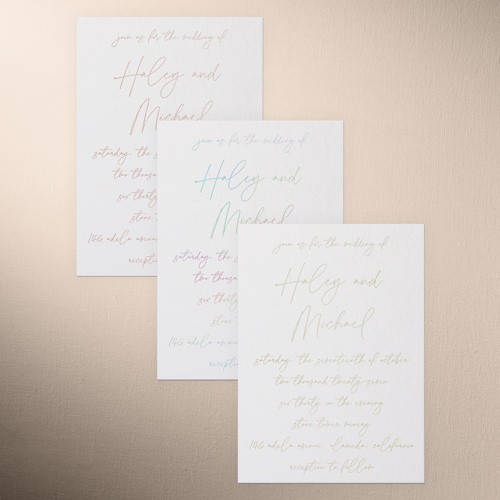 join us for the wedding of
Haley and
Michael
saturday, the s
two thousan
six thirty
stone
146 adela avenu
reception
join us for the wedding of
Haley and
Michael
saturday, the s
two thousan
six thirty
stone
146 adela aven
reception
join us for the wedding of
Haley and
Michael
saturday, the seventeenth of october
two thousand twenty seven
six thirty in the evening
stone tower
146 adela avenue, alameda, california
reception to follow